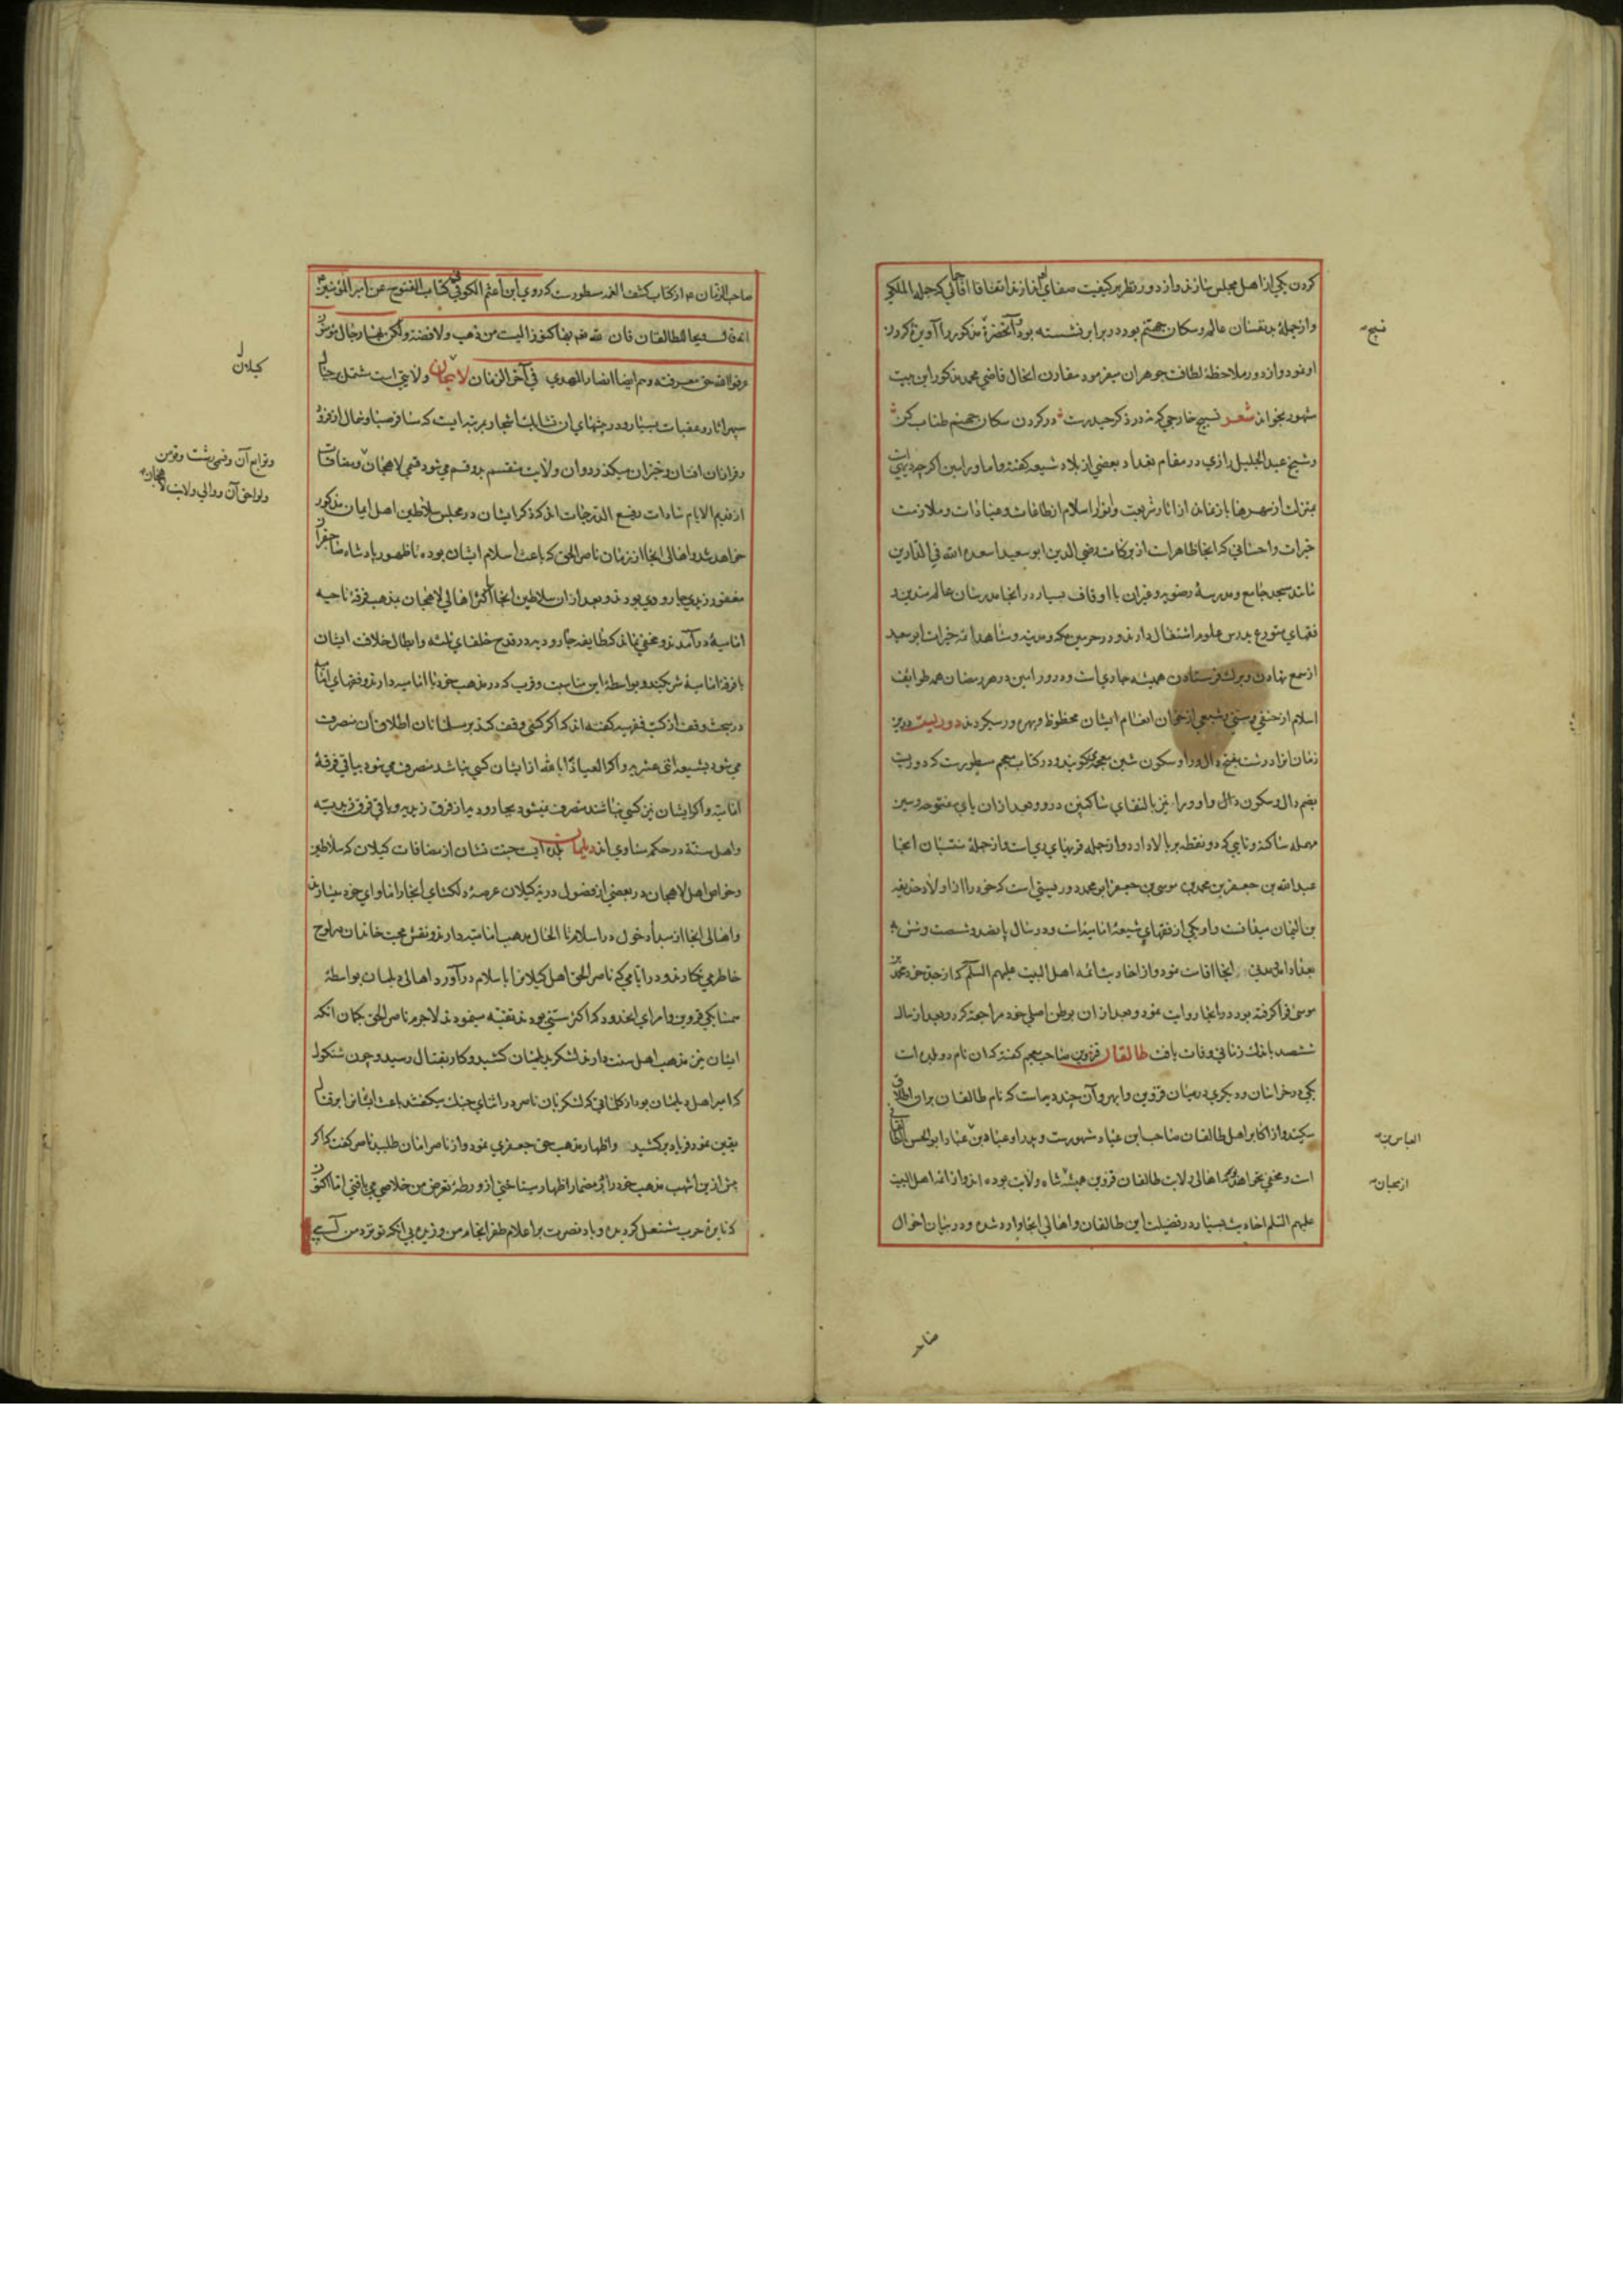 کردن یکی از اهل مجلس
واز جمله بدبختان عالم و سکان جهنم بود در برابر نشسته بود آنحضرة مذکور را
او نمود واز دور ملاحظهٔ لطافت جوهر ان میفرمود مقارن انحال قاضی محمد مذکور این بیت
مشهور بخواند شعر نسبح خارجی که نه در ذکر حیدرست در کردن سکان جهنم طناب کن
وشیخ عبد الجلیل رازی در مقام تعداد بعضی از بلاد شیعه کفته و اما ورامین اکرچه
بمنزلت از شهرها باز نماند از اثار شریعت وانوار اسلام از طاعات وعبادات وملازمت
خیرات واحسانی که انجا ظاهرات از برکات رضی الدین ابو سعید اسعده الله فی الدارین
مانند مسجد جامع ومدرسهٔ رضویه وغیر ان با اوقاف بسیار در انجا مدرسان عالم متدین و
فقهای متورع بدرس علوم اشتغال دارند ودر حرمین مکه ومدینه ومشاهد ائمه خیرات ابو سعید
از شمع نهادن وبرک فرستادن همیشه جاری است ودر ورامین در هر رمضان همه طوایف
اسلام از حنفی وسنی وشیعی از خوان انعام ایشان محظوظ وبهره ور میکردند دوریست درین
زمان انرا درشت بفتح دال ورا وسکون شین معجمه کویند ودر کتاب معجم مسطورست که دوریست
بضم دال وسکون دال واو ورا نیز بالتقای ساکنین در و وبعد از ان یای مفتوحه وسین
مهمله ساکنه وتایی که دو نقطه بر بالا دارد واز جمله قریهای ری است واز جملهٔ منتسبان انجا
عبد الله بن جعفر بن محمد بن موسی بن جعفر ابن محمد دوریستی است که خود را از اولاد حذیفه
بن الیمان میدانست واو یکی از فقهای شیعهٔ امامیه است ودر سال پانصد وشصت وشش به
بغداد امد ومدتی انجا اقامت نمود واز احادیث ائمه اهل البیت علیهم السلم که از جد خود محمد بن
موسی فرا کرفته بود در انجا روایت نمود وبعد از ان بوطن اصلی خود مراجعت کرد وبعد از سال
ششصد باندک زمانی وفات یافت طالقان قزوین صاحب معجم کفته که ان نام دو بلده است
یکی در خراسان ودیکری درمیان قزوین وابهر وآن چند دیه است که نام طالقان بران اطلاق
میکنند واز اکابر اهل طالقان صاحب ابن عباد مشهورست وپدر او عباد بن عباد ابو الحسن الطالقانی
است ومخفی نخواهد بود که اهالی ولایت طالقان قزوین همیشه شاه ولایت بوده اند واز ائمه اهل البیت
علیهم السلم احادیث بسیار در فضیلت این طالقان واهالی انجا وارد شده ودر بیان احوال
نسبح
صاحب الزمان ع م از کتاب کشف الغمه مسطورست که روی ابن اعثم الکوفی فی کتاب الفتوح عن امیر المؤمنین
انه قال ویحا للطالقان فان لله عز بها کنوزا لیست من ذهب ولا فضة ولکن بها رجال مؤمنون
عرفوا الله حق معرفته وهم ایضا انصار المهدی فی آخر الزمان لاهیجان ولایتی است مشتمل بر جبال
وفرا ان افتان وخیزان میکذرد وان ولایت منقسم بدو قسم می شود قسمی لاهجان ومضافات
از قدیم الایام سادات رفیع الدرجات اند که ذکر ایشان در مجلس سلاطین اهل ایمان مذکور
خواهد شد واهالی انجا از زمان ناصر الحق که باعث اسلام ایشان بوده تا ظهور پادشاه صاحبقران
مغفور زیدی جارودی بودند وبعد از ان سلاطین انجا واکثر اهالی لاهجان بمذهب فرقهٔ ناجیه
امامیه درآمدند ومخفی نماند که طایفه جارودیه در قدح خلفای ثلثه وابطال خلافت ایشان
با فرقهٔ امامیه شریکند وبواسطهٔ این مناسبت وقرب که در مذهب خود با امامیه دارند وفقهای امامیه
در بحث وقف از کتب فقهیه کفته اند که اکر کسی وقف کند بر مسلمانان اطلاق ان منصرف
می شود بشیعه اثنی عشریه واکر العیاذ بالله از ایشان کسی نباشد منصرف می شود بباقی فرقهٔ
امامیه واکر از ایشان نیز کسی نباشد منصرف میشود بجارودیه از فرق زیدیه وباقی فرق زیدیه
واهل سنة در حکم مساوی اند دیلمان بلده ایست جنت نشان از مضافات کیلان که سلاطین
وخواص اهل لاهجان در بعضی از فصول در کیلان عرصهٔ دلکشای انجا را ماوای خود میسازند
واهالی انجا از مبدأ دخول در اسلام تا الحال مذهب امامیه دارند ونقش محبت خاندان بر لوح
خاطر می نکارند ودر ایامی که ناصر الحق اهل کیلانرا باسلام درآورد اهالی دیلمان بواسطهٔ
همسایکی قزوین وامرای انحدود که اکثر سنی بودند تقیه مینمودند لاجرم ناصر الحق بکمان انکه
ایشان نیز مذهب اهل سنت دارند لشکر بدیلمان کشید وکار بقتال رسید وچون
که امیر اهل دیلمان بود از کلماتی که لشکریان ناصر در اثنای جنک میکفتند باعث ایشانرا بر قتال
یقین نمود فریاد برکشید واظهار مذهب حق جعفری نمود واز ناصر امان طلبید ناصر کفت که اکر
پیش ازین
که نایرهٔ حرب مشتعل کردیده وباد نصرت بر اعلام ظفر انجام من وزیده بی انکه تو نزد من آیی
کیلان
وتوابع آن وقسمی رشت وفومن
ولواحق آن ووالی ولایت لاهجان